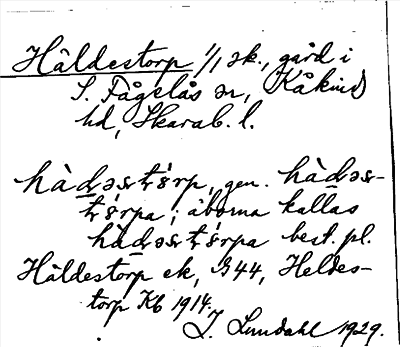 Håldestorp 1/1 sk., gård i
S. Fågelås sn, Kåkinds
hd, Skarab. l.
hàdəstŕ̥rp, gen. hàdəs-
tŕ̥rpa; åborna kallas
hàdəstŕ̥rpa best. pl.
Håldestorp ek, G44, Heldes-
torp Kb 1914.
J. Lundahl 1929.